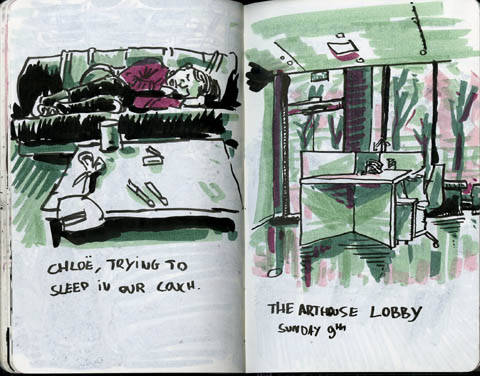 CHLOË, TRYING TO
SLEEP IN OUR COXCH.
THE ARTHOUSE LOBBY
SUNDAY 9th